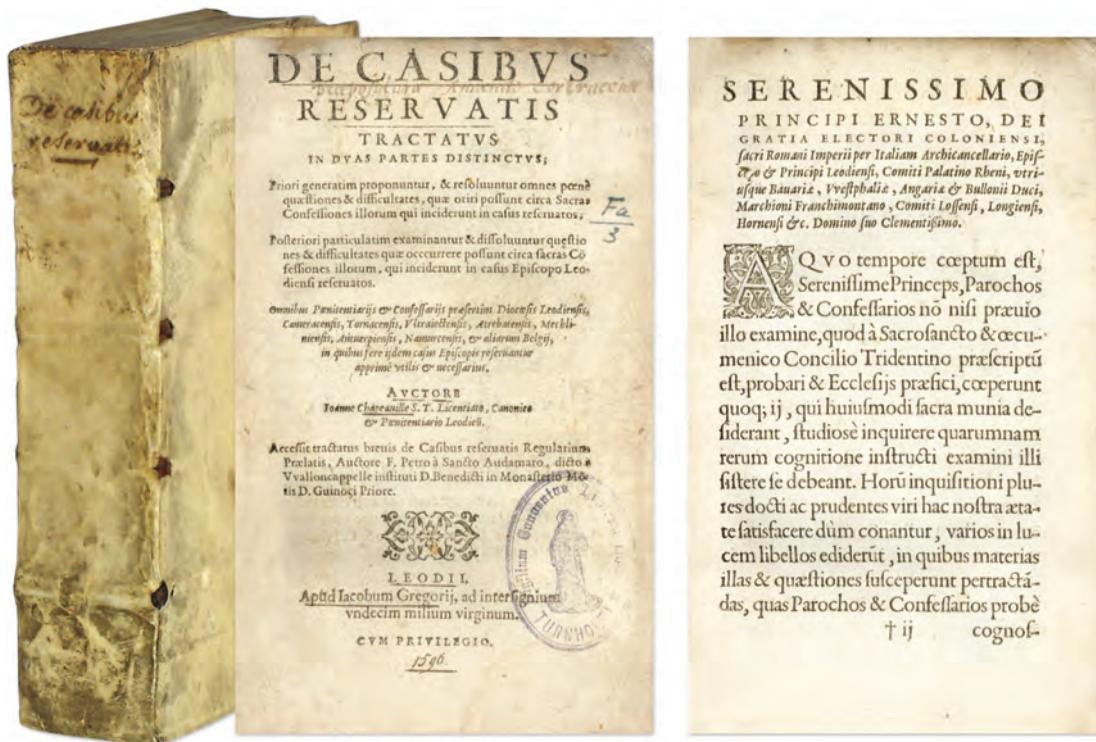 De casibus
reservatis
DE CASIBVS
RESERVATIS
TRACTATVS
IN DVAS PARTES DISTINCTVS;
Priori generatim proponuntur, & resoluuntur omnes pœnè
quæstiones & difficultates, quæ oriri possunt circa Sacras
Confessiones illorum qui inciderunt in casus reseruatos,
Posteriori particulatim examinantur & dissoluuntur questio
nes & difficultates quæ occcurrere possunt circa sacras Cõ
fessiones illorum, qui inciderunt in casus Episcopo Leo-
diensi reseruatos.
Omnibus Pœnitentiarijs & Confessarijs præsertim Diocesis Leodiensis,
Cameracensis, Tornacensis, Vltraiectensis, Atrebatensis, Mechli-
niensis, Antuerpiensis, Namurcensis, & aliarum Belgij,
in quibus fere ijdem casus Episcopis reseruantur
apprimè vtilis & necessarius.
AVCTORE
Ioanne Chapeauille S. T. Licentiato, Canonico
& Pœnitentiario Leodieñ.
Accessit tractatus breuis de Casibus reseruatis Regularium
Prælatis, Auctore F. Petro à Sancto Audamaro, dicto à
Vvalloncappelle instituti D. Benedicti in Monasterio Mõ
tis D. Guinoçi Priore.
LEODII,
Apud Iacobum Gregorij, ad intersignium
vndecim milium virginum.
CVM PRIVILEGIO.
1596
Fa
3
Conventus
TURNHO
SERENISSIMO
PRINCIPI ERNESTO, DEI
GRATIA ELECTORI COLONIENSI,
sacri Romani Imperii per Italiam Archicancellario, Epis-
copo & Principi Leodiensi, Comiti Palatino Rheni, vtri-
usque Bauariæ, Vvestphaliæ, Angariæ & Bullonii Duci,
Marchioni Franchimontano, Comiti Lossensi, Longiensi,
Hornensi &c. Domino suo Clementißimo.
A Qvo tempore cœptum est,
Serenissime Princeps, Parochos
& Confessarios nõ nisi præuio
illo examine, quod à Sacrosancto & œcu-
menico Concilio Tridentino præscriptũ
est, probari & Ecclesijs præfici, cœperunt
quoq; ij, qui huiusmodi sacra munia de-
siderant, studiosè inquirere quarumnam
rerum cognitione instructi examini illi
sistere se debeant. Horũ inquisitioni plu-
res docti ac prudentes viri hac nostra æta-
te satisfacere dùm conantur, varios in lu-
cem libellos ediderũt, in quibus materias
illas & quæstiones susceperunt pertractã-
das, quas Parochos & Confessarios probè
† ij cognos-